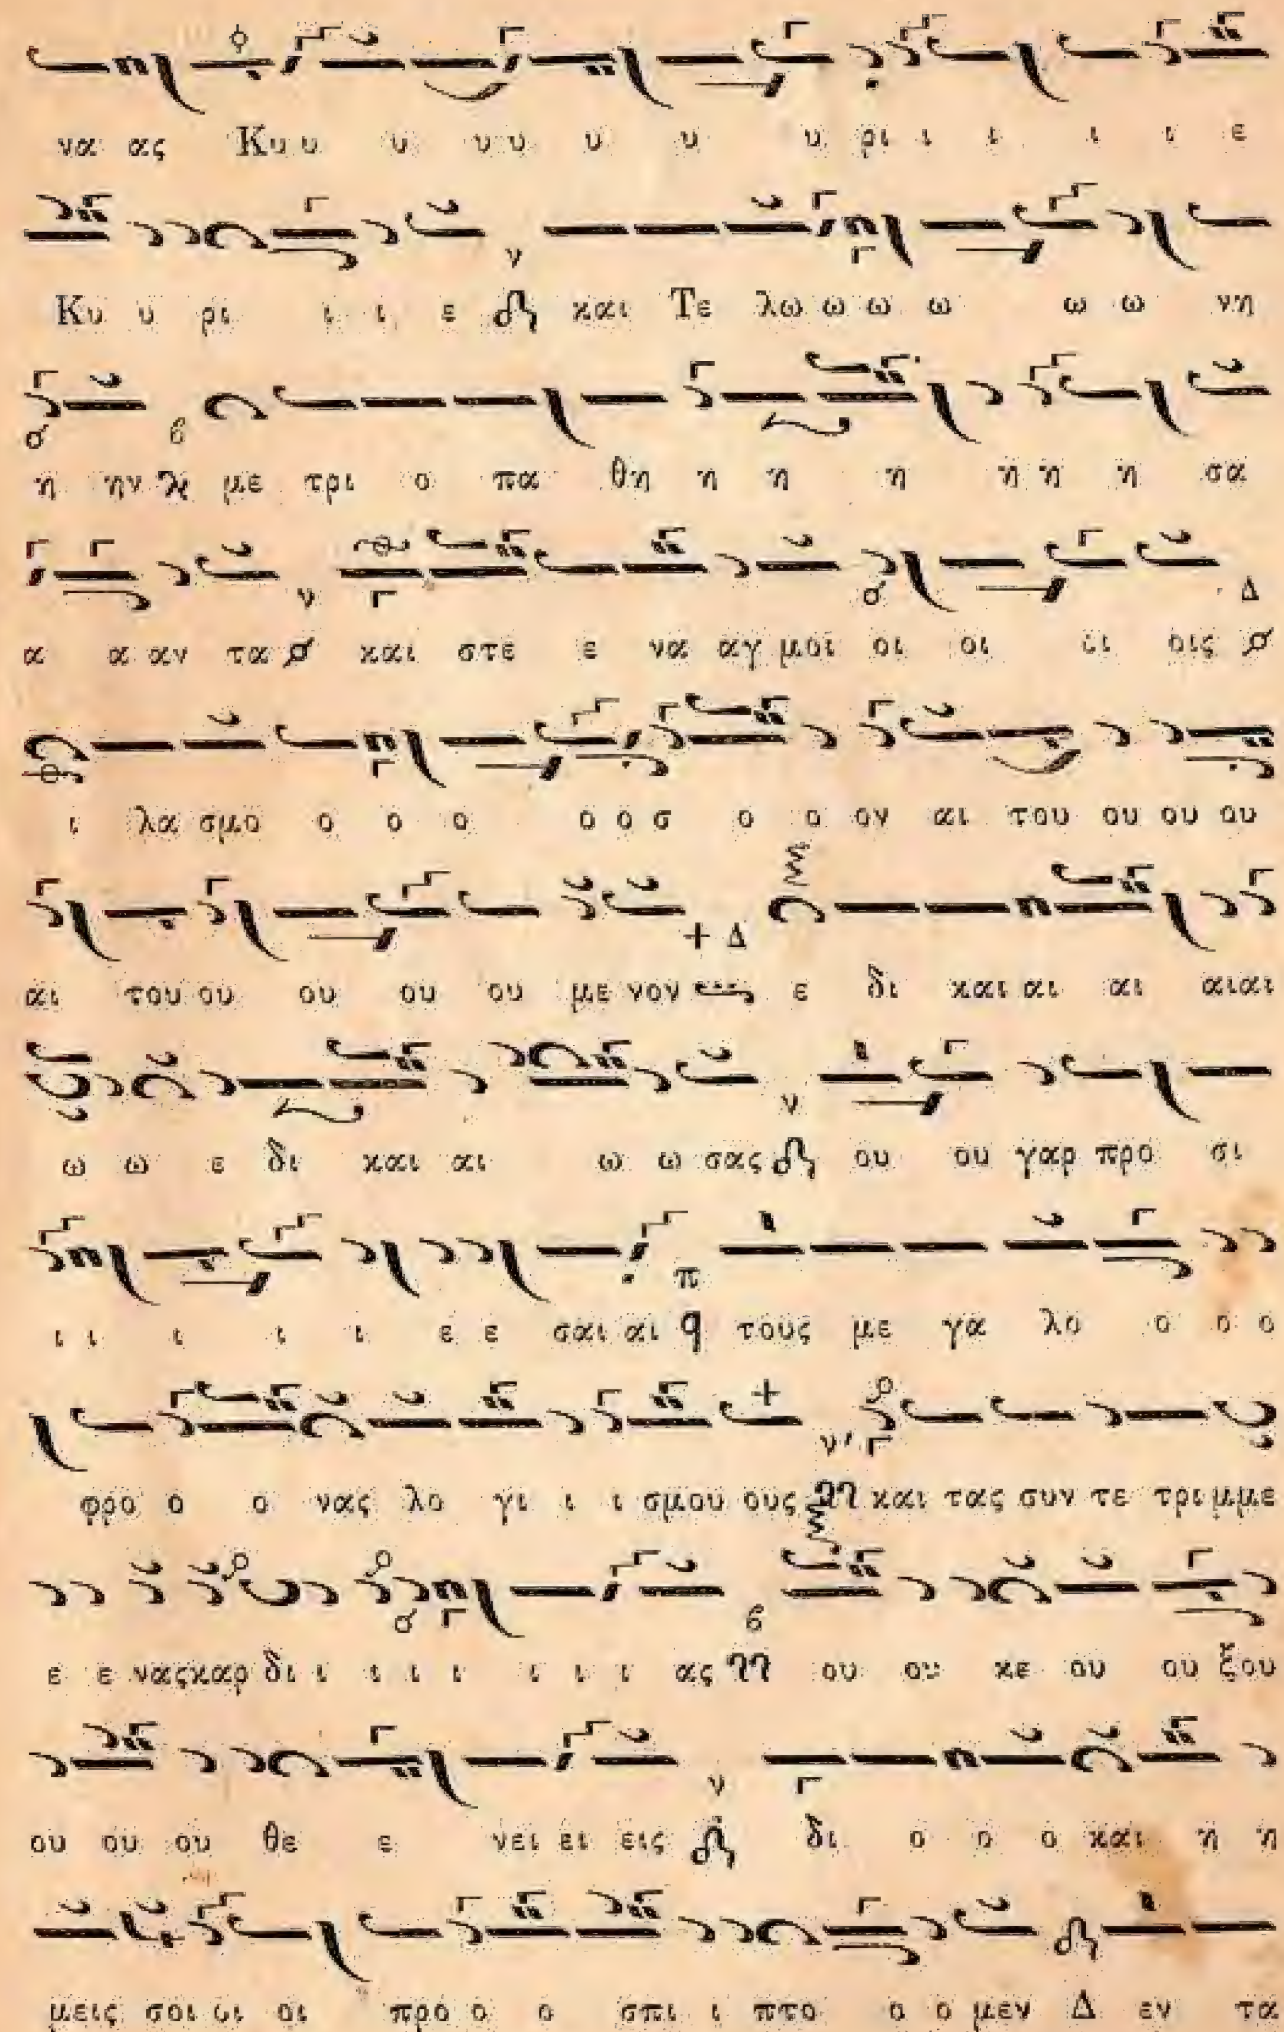 να ας Κυ υ υ υ υ υ υ υ ρι ι ι ι ι ε
Κυ υ ρι ι ι ε και Τε λω ω ω ω ω ω νη
η ην με τρι ο πα θη η η η η η η σα
α α αν τα και στε ε να αγ μοι οι οι οι οις
ι λα σμο ο ο ο ο ο σ ο ο ον αι του ου ου ου
αι του ου ου ου ου με νον ε δι και αι αι αι αι
ω ω ε δι και αι ω ω σας ου ου γαρ προ σι
ι ι ι ι ι ε ε σαι αι τους με γα λο ο ο ο
φρο ο ο νας λο γι ι ι σμου ους και τας συν τε τριμ με
ε ε νας καρ δι ι ι ι ι ι ι ι ας ου ου κε ου ου ξου
ου ου ου θε ε νει ει εις δι ο ο ο και η η
μεις σοι οι οι προ ο ο σπι ι πτο ο ο μεν Δ εν τα